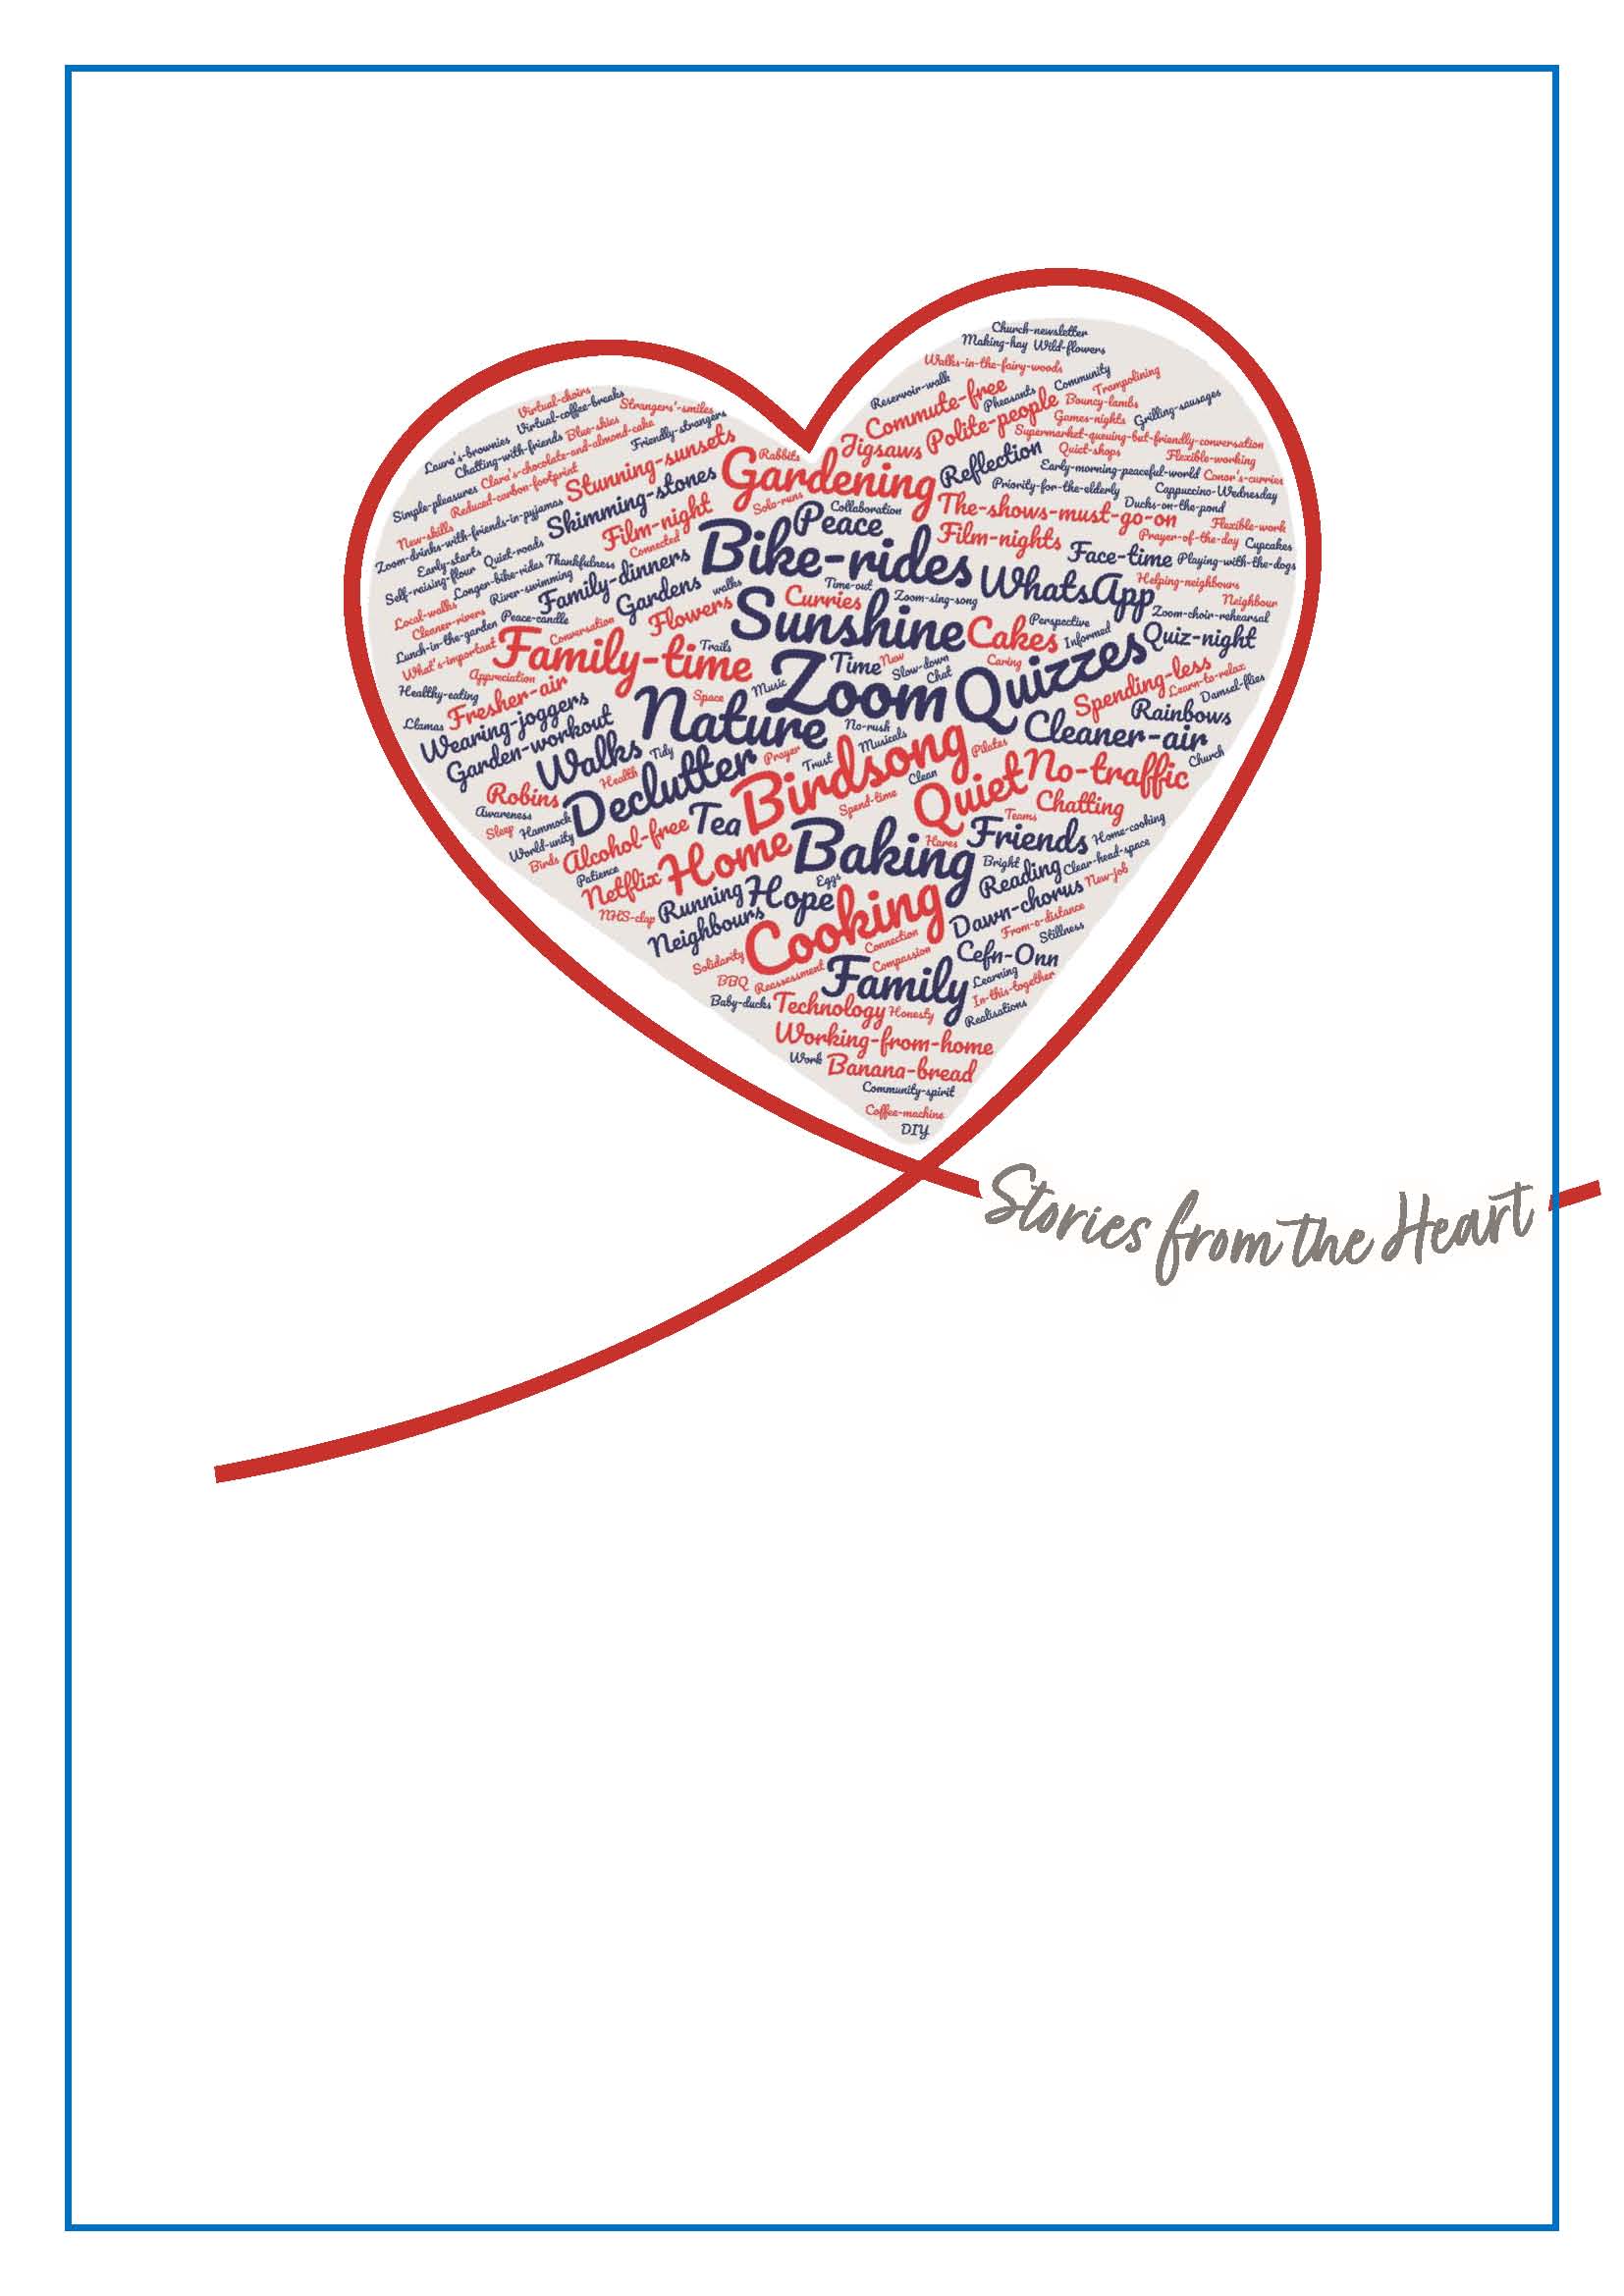 Church-newsletter
Making-hay Wild-flowers
Walks-in-the-fairy-woods
Reservoir-walk
Commute-free
Pheasants
Community
Trampolining
Virtual-choirs
Virtual-coffee-breaks
Strangers'-smiles
Laura's-brownies
Chatting-with-friends
Blue-skies
Friendly-strangers
Jigsaws
Polite-people
Bouncy-lambs
Games-nights
Grilling-sausages
Supermarket-queuing-but-friendly-conversation
Simple-pleasures
Clara's-chocolate-and-almond-cake
Reduced-carbon-footprint
Stunning-sunsets
Rabbits
Gardening
Reflection
Quiet-shops
Flexible-working
Early-morning-peaceful-world
Conor's-curries
Priority-for-the-elderly
Cappuccino-Wednesday
Ducks-on-the-pond
New-skills
Zoom-drinks-with-friends-in-pyjamas
Skimming-stones
Film-night
Solo-runs
Collaboration
Peace
The-shows-must-go-on
Flexible-work
Prayer-of-the-day
Cupcakes
Early-starts
Quiet-roads
Thankfulness
Connected
Bike-rides
Film-nights
Face-time
Playing-with-the-dogs
Self-raising-flour
Longer-bike-rides
River-swimming
Family-dinners
Gardens
walks
Time-out
Zoom-sing-song
WhatsApp
Helping-neighbours
Neighbour
Local-walks
Cleaner-rivers
Peace-candle
Flowers
Curries
Sunshine
Cakes
Perspective
Informed
Zoom-choir-rehearsal
Quiz-night
Lunch-in-the-garden
What's-important
Conversation
Family-time
Trails
Time
New
Slow-down
Chat
Caring
Appreciation
Healthy-eating
Fresher-air
Space
Music
Zoom
Quizzes
Spending-less
Learn-to-relax
Damsel-flies
Llamas
Wearing-joggers
Garden-workout
Nature
No-rush
Musicals
Rainbows
Cleaner-air
Church
Walks
Tidy
Prayer
Trust
Birdsong
Pilates
Robins
Health
Declutter
Clean
Spend-time
Quiet
No-traffic
Awareness
Sleep
Hammock
World-unity
Birds
Alcohol-free
Tea
Teams
Chatting
Patience
Netflix
Home
Baking
Hares
Friends
Home-cooking
NHS-clap
Running
Hope
Eggs
Bright
Reading
Clear-head-space
New-job
Neighbours
Cooking
Dawn-chorus
From-a-distance
Stillness
Solidarity
Connection
Compassion
Cefn-Onn
BBQ
Reassessment
Family
Learning
In-this-together
Realisations
Baby-ducks
Technology
Honesty
Working-from-home
Work
Banana-bread
Community-spirit
Coffee-machine
DIY
Stories from the Heart